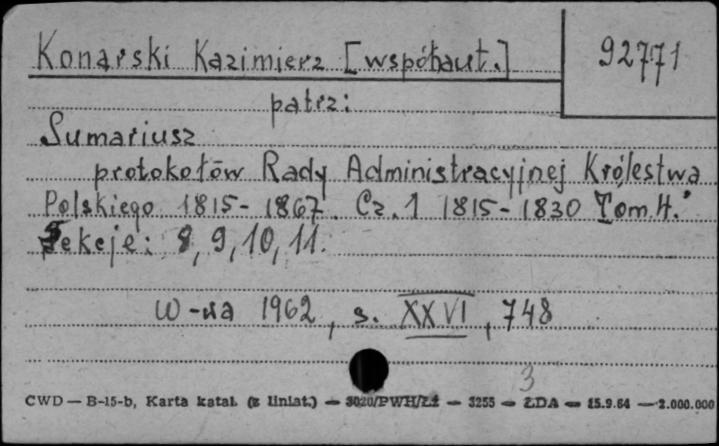 Konarski Kazimierz [współaut.]
92771
patrz:
Sumariusz
protokołów Rady Administracyjnej Królestwa
Polskiego 1815-1867. Cz. 1 1815-1830 Tom 4.
Sekcje: 8, 9, 10, 11.
W-wa 1962, s. XXVI, 748
3
CWD — B-15-b, Karta katal. (z liniat.) — 3020/PWH/Łż — 3255 — ŁDA — 15.9.64 — 2.000.000